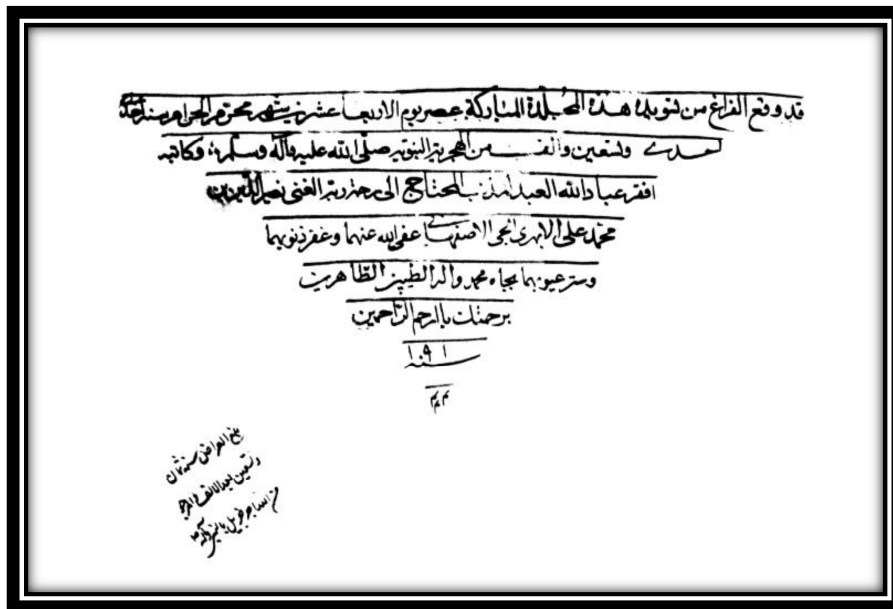 قد وقع الفراغ من تسويد هذه المجلدة المباركة عصر يوم الاربعا عشرين شهر محرم الحرام سنة احدى
وتسعين والف من الهجرية النبوية صلى الله عليه وآله وسلم وكاتبه
افقر عباد الله العبد المذنب المحتاج الى رحمة ربه الغنى نصير الدين بن
محمد على الابهرى الجى الاصفهانى عفى الله عنهما وغفر ذنوبهما
وستر عيوبهما بجاه محمد واله الطيبين الطاهرين
برحمتك يا ارحم الراحمين
سنة ١٠٩١
بلغ العراض سنة ثمان
وتسعين بعد الالف